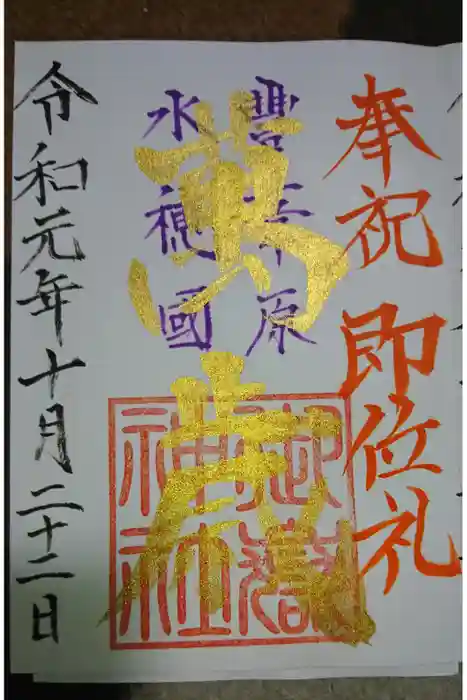 奉祝 即位礼
豐葦原
水穂國
萬歳
御嶽
神社
令和元年十月二十二日